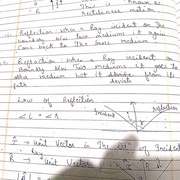 This is known as
rectilinear motion
Reflection when a Ray incident on the
boundary b/w Two mediums it again
Come back to the same medium
Refraction when a Ray incident
Boundary b/w Two mediums it goes to
other medium but it deviate from its
path
Law of Reflection
∠i = ∠r
Incident
Reflection
I → Unit Vector in The Dir^n of Incident
R Unit Vector